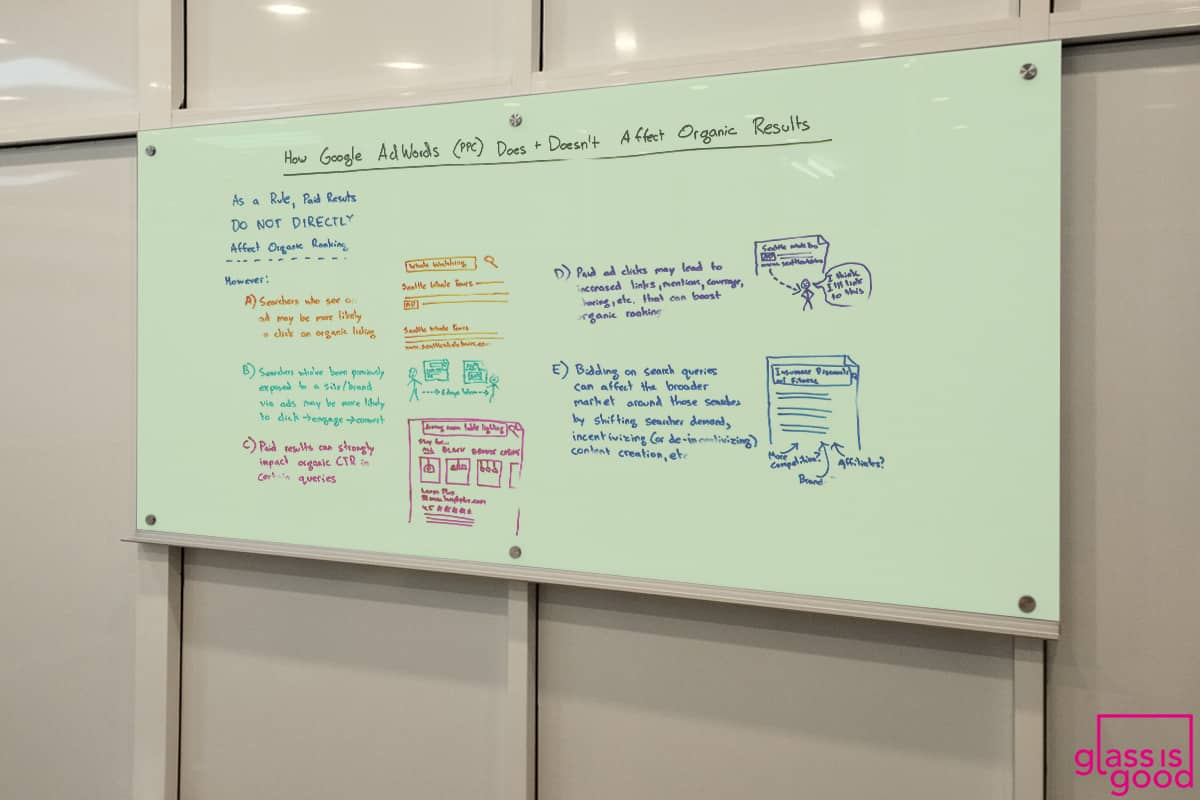 How Google AdWords (PPC) Does + Doesn't Affect Organic Results
As a Rule, Paid Results
DO NOT DIRECTLY
Affect Organic Ranking
However:
A) Searchers who see
ad may be more likely
click an organic listing
B) Searchers who've been previously
exposed to a site/brand
via ads may be more likely
to click→engage→convert
C) Paid results can strongly
impact organic CTR in
certain queries
Whale Watching
Seattle Whale Tours
AD
Seattle Whale Tours
www.seattlewhaletours.co
2 days later
dining room table lighting
Shop for
ALL BLACK BRONZE
Lamps Plus
www.lampsplus.com
4.5 ★★★★★
D) Paid ad clicks may lead to
increased links, mentions, coverage,
sharing, etc. that can boost
organic ranking
Seattle Whale
AD
I think
I'll link
to this
E) Bidding on search queries
can affect the broader
market around those searches
by shifting searcher demand,
incentivizing (or de-incentivizing)
content creation, etc
Insurance
and Fitness
More
competition?
Brand
Affiliates?
glass is
good